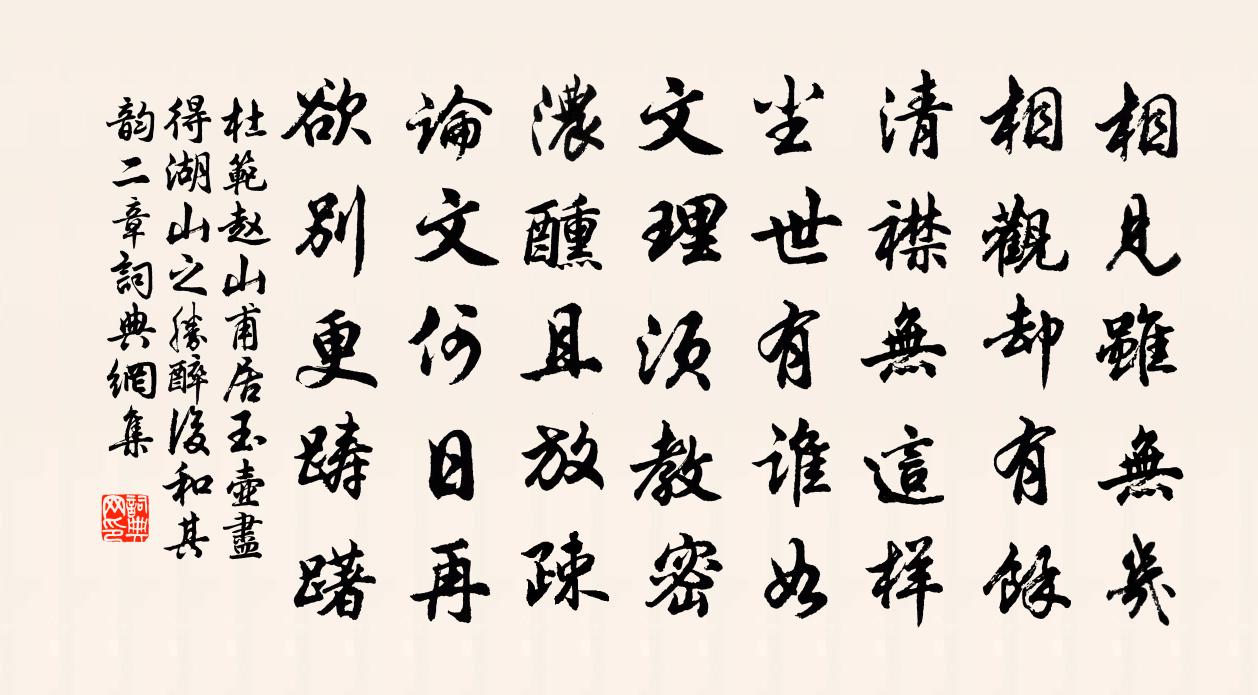 相見雖無幾
相觀却有餘
清襟無這样
尘世有谁如
文理須教密
濃醺且放疎
論文何日再
欲别更踌躇
杜範赵山甫居玉壺盡
得湖山之勝醉後和其
韵二章詞典網集
詞典网印